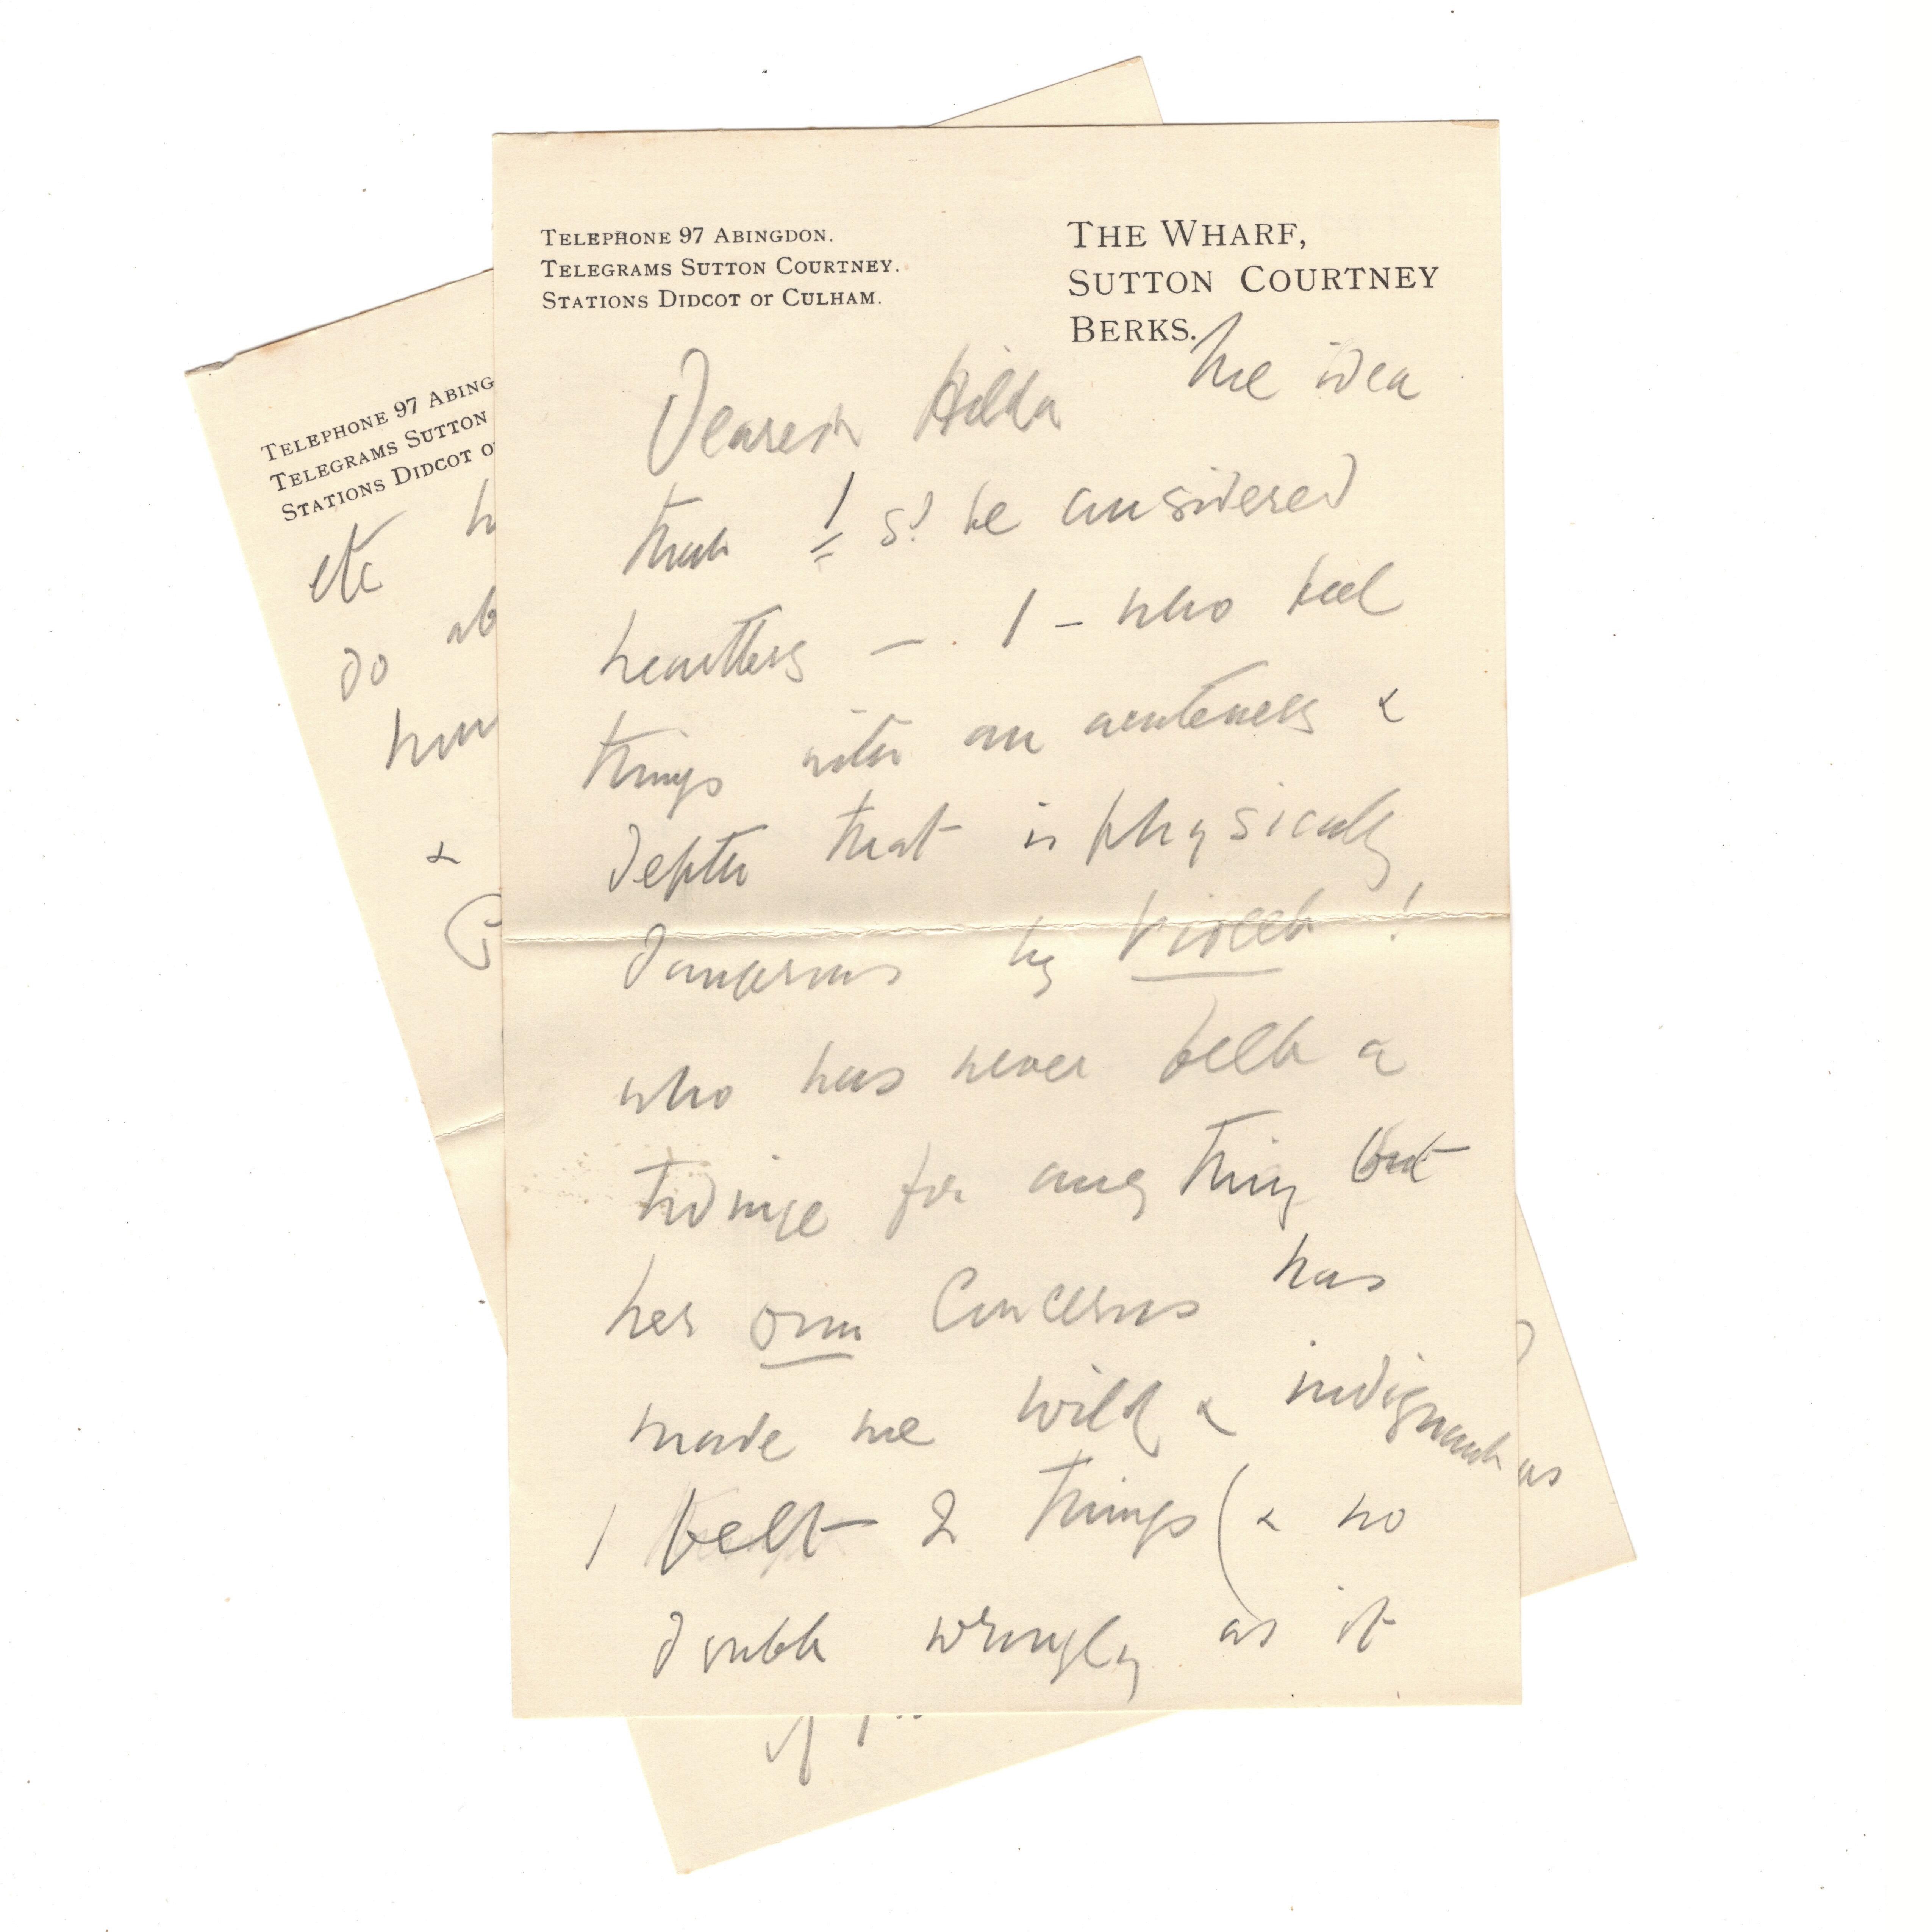 TELEPHONE 97 ABINGDON.
TELEGRAMS SUTTON COURTNEY.
STATIONS DIDCOT or CULHAM.
THE WHARF,
SUTTON COURTNEY
BERKS.
Dearest Hilda The idea
that I sd be considered
heartless — I — who feel
things with an acuteness &
depth that is physically
dangerous by !
who has never felt a
twinge for any thing but
her own concerns has
made me wild & indignant as
I felt 2 things (& no
doubt wrongly as it
TELEPHONE 97 ABING
TELEGRAMS SUTTON
STATIONS DIDCOT o
etc h
do ab
&